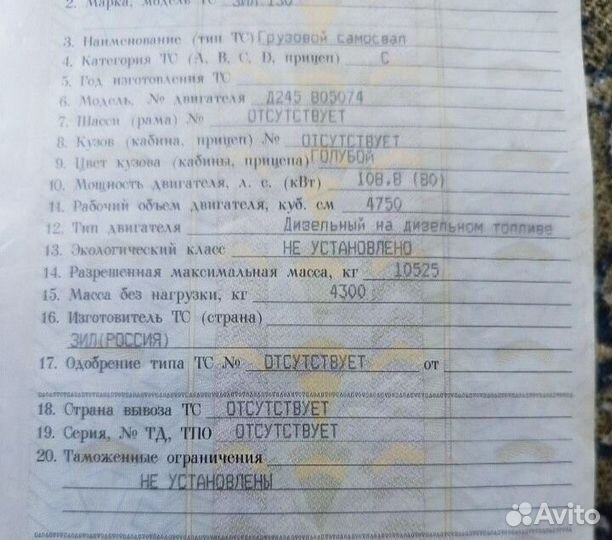 2. Марка, модель ТС ЗИЛ 130
3. Наименование (тип ТС) Грузовой самосвал
4. Категория ТС (А, В, С, D, прицеп) С
5. Год изготовления ТС
6. Модель, № двигателя Д245 805074
7. Шасси (рама) № ОТСУТСТВУЕТ
8. Кузов (кабина, прицеп) № ОТСУТСТВУЕТ
9. Цвет кузова (кабины, прицепа) ГОЛУБОЙ
10. Мощность двигателя, л. с. (кВт) 108.8 (80)
11. Рабочий объем двигателя, куб. см 4750
12. Тип двигателя Дизельный на дизельном топливе
13. Экологический класс НЕ УСТАНОВЛЕНО
14. Разрешенная максимальная масса, кг 10525
15. Масса без нагрузки, кг 4300
16. Изготовитель ТС (страна)
ЗИЛ(РОССИЯ)
17. Одобрение типа ТС № ОТСУТСТВУЕТ от
18. Страна вывоза ТС ОТСУТСТВУЕТ
19. Серия, № ТД, ТПО ОТСУТСТВУЕТ
20. Таможенные ограничения
НЕ УСТАНОВЛЕНЫ
Avito